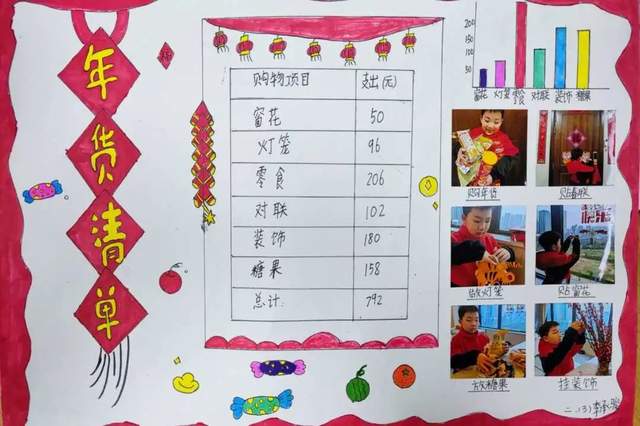 年货清单
购物项目 支出(元)
窗花 50
灯笼 96
零食 206
对联 102
装饰 180
糖果 158
总计 792
200
150
100
50
窗花 灯笼 零食 对联 装饰 糖果
购年货 贴春联
做灯笼 贴窗花
放糖果 挂装饰
二、(3) 李